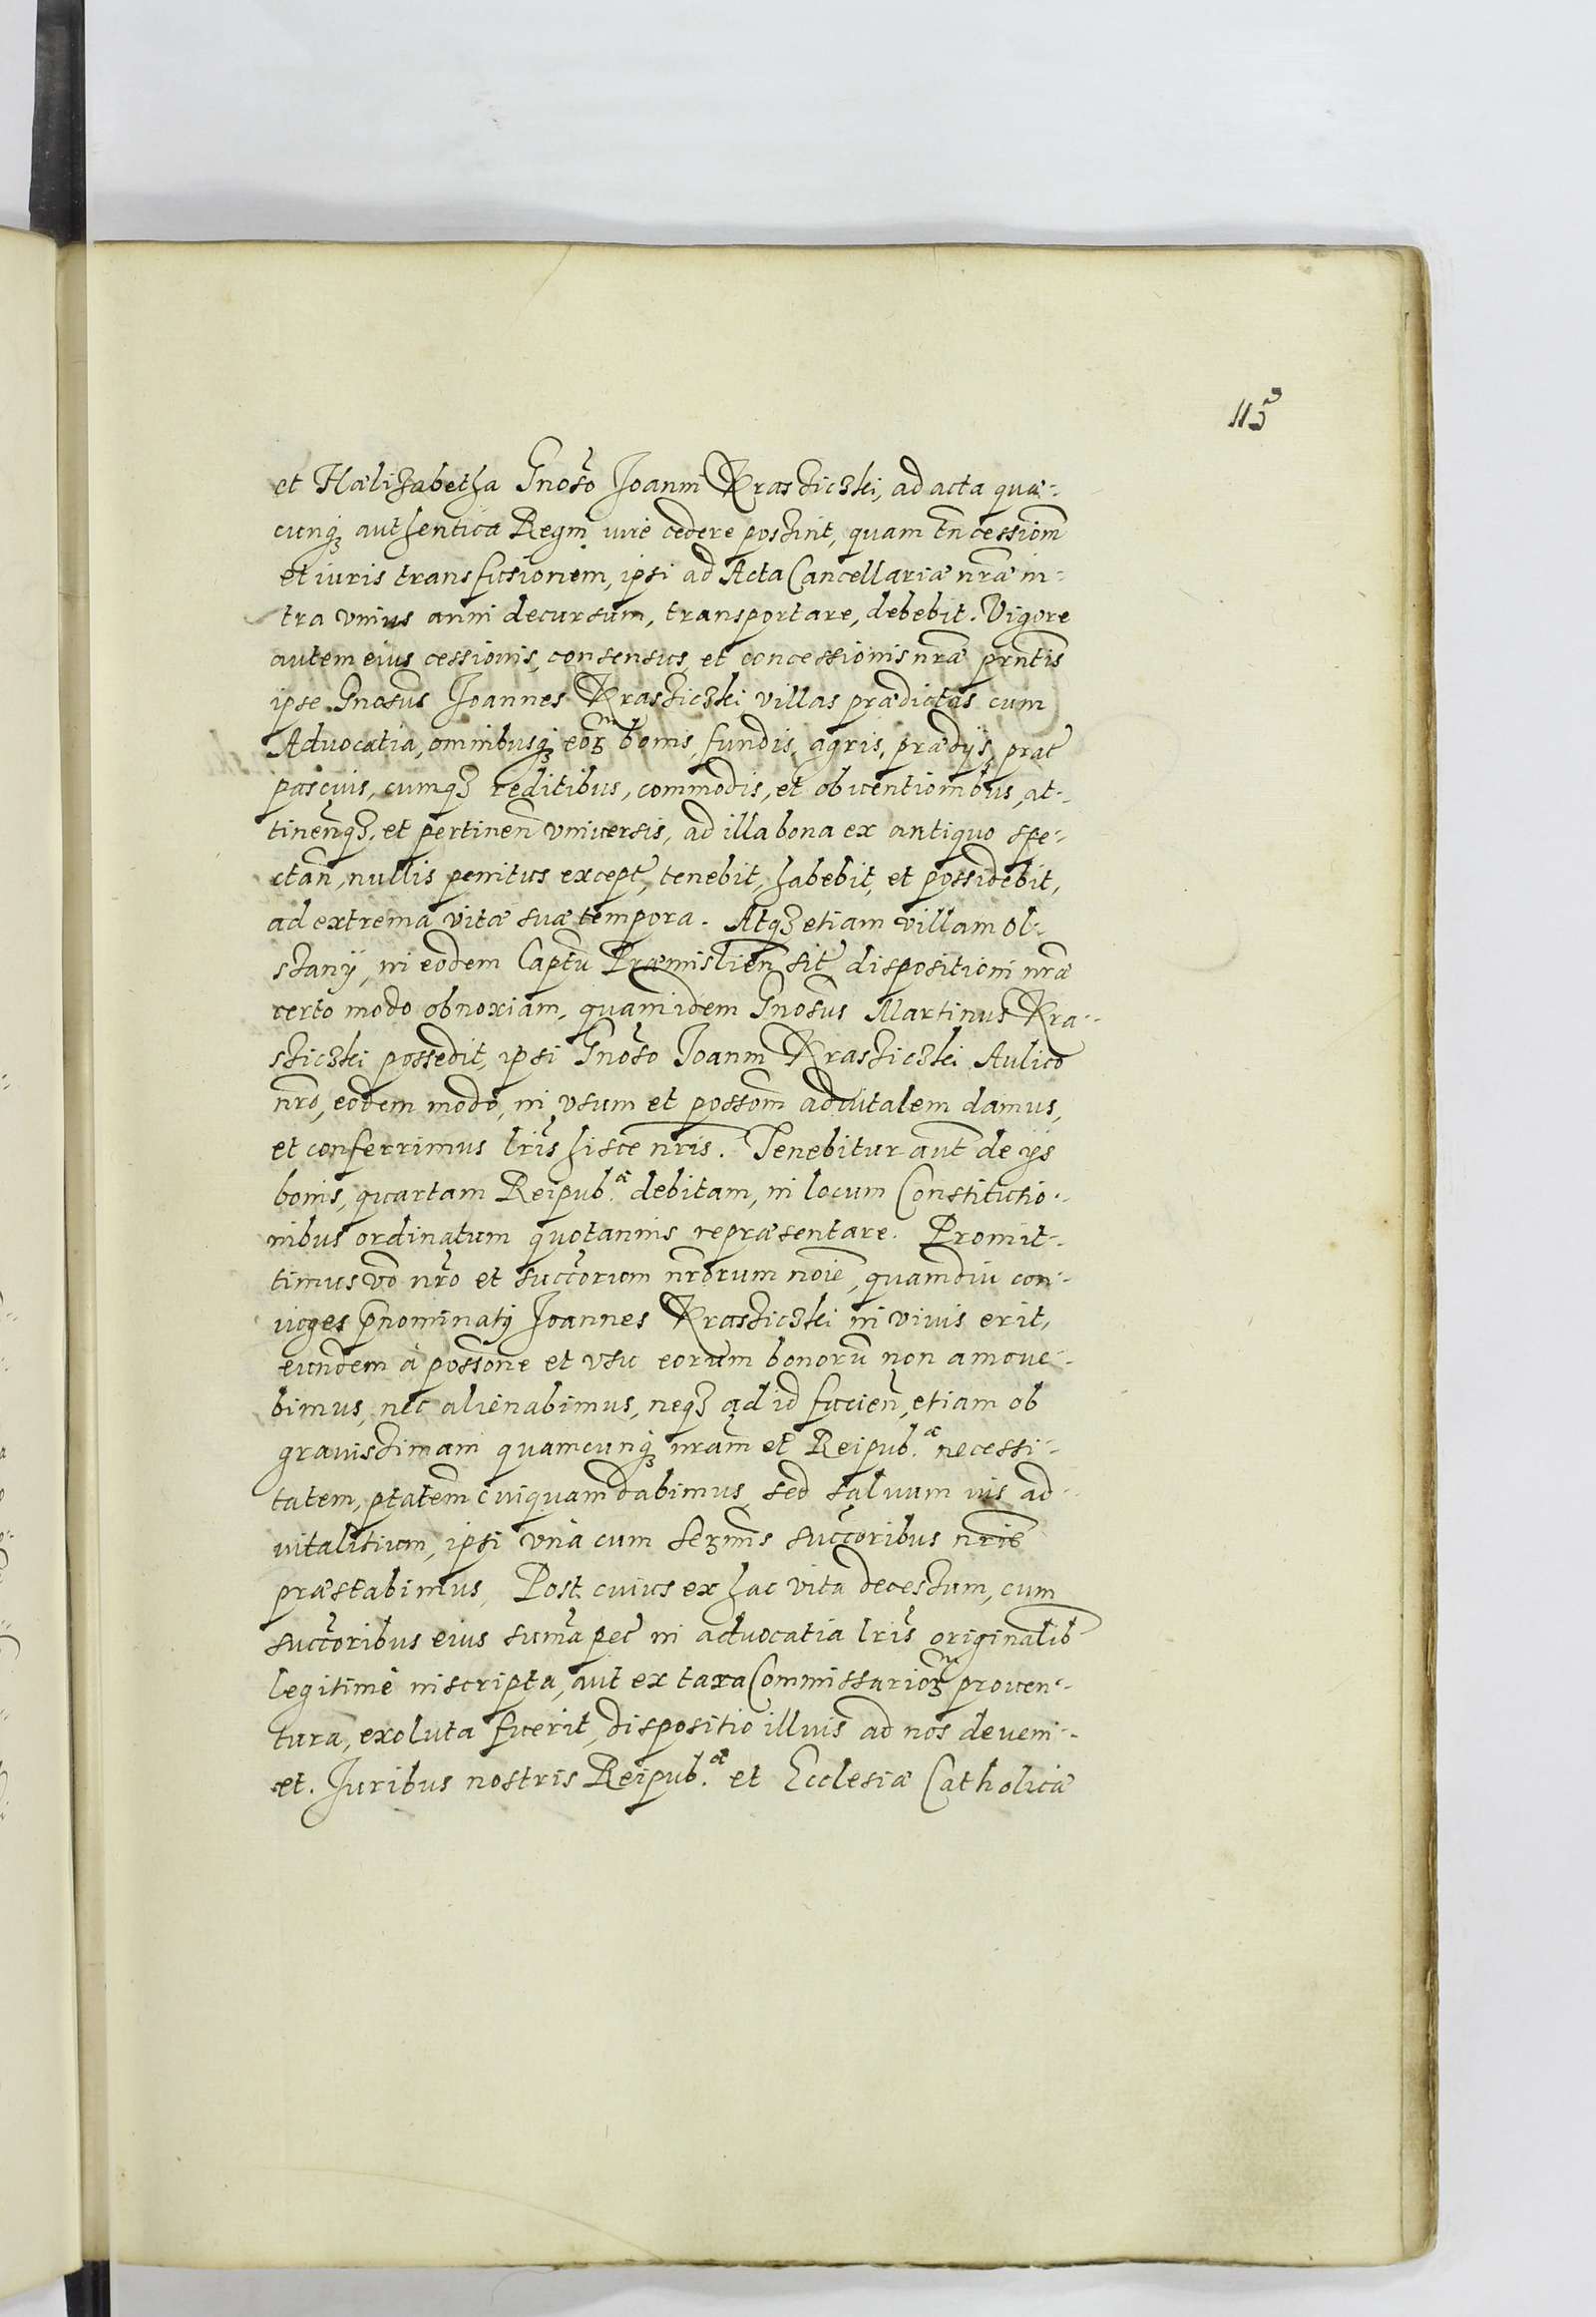 115
et Hælizabetha Gnoso Joanni Krasiczki, ad acta quæ-
cunqȝ authentica Regni iure cedere possint, quam tn cessionm
et iuris transfusionem, ipsi ad Acta Cancellariæ nræ in-
tra vnius anni decursum, transportare, debebit. Vigore
autem eius cessionis, consensus, et concessionis nræ prntis
ipse Gnosus Joannes Krasiczki villas prædictas cum
Aduocatia, omnibusqȝ eoꝝ bonis, fundis, agris, prædijs, prat
pascuis, cumqȝ reditibus, commodis, et obuentionibus, at-
tinenqȝ, et pertinen vniuersis, ad illa bona ex antiquo spe-
ctan, nullis penitus except, tenebit, habebit, et possidebit,
ad extrema vitæ suæ tempora. Atqȝ etiam villam Ol-
szany, in eodem Captu Præmislien sit dispositioni nræ
certo modo obnoxiam, quam idem Gnosus Martinus Kra-
siczki possedit, ipsi Gnoso Joanni Krasiczki Aulico
nro, eodem modo, in vsum et possom aduitalem damus,
et conferrimus lris hisce nris. Tenebitur aut de ijs
bonis, quartam Reipub.æ debitam, in locum Constitutio-
nibus ordinatum quotannis repræsentare. Promit-
timus vo nro et succorum nrorum noie, quamdiu con-
iuges prænominatj Joannes Krasiczki in viuis erit,
eundem à possone et vsu eorum bonoru non amoue-
bimus, nec alienabimus, neqȝ ad id facien, etiam ob
grauissimam quamcunqȝ nram et Reipub.æ necessi-
tatem, ptatem cuiquam dabimus, sed saluum ius ad-
uitalitium, ipsi vnà cum Sermis succoribus nris
præstabimus, Post cuius ex hac vita decessum, cum
succoribus eius suma pec in aduocatia lris originalib
legitimè inscripta, aut ex taxa Commissarioꝝ prouen-
tura, exoluta fuerit, dispositio illius ad nos deueni-
et. Juribus nostris Reipub.æ et Ecclesiæ Catholicæ